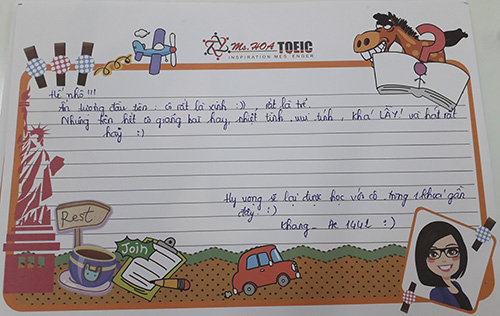 Ms. HOA TOEIC
INSPIRATION MEG ENDER
Hế nhô !!!
Ấn tượng đầu tiên : cô rất là xinh :)) , rất là trẻ.
Nhưng trên hết cô giảng bài hay, nhiệt tình, vui tính, khá LẦY! và hát rất
hay :)
Hy vọng sẽ lại được học với cô trong 1 khoá gần
đây :)
Khang _ AC 1442 :)
Rest
Join